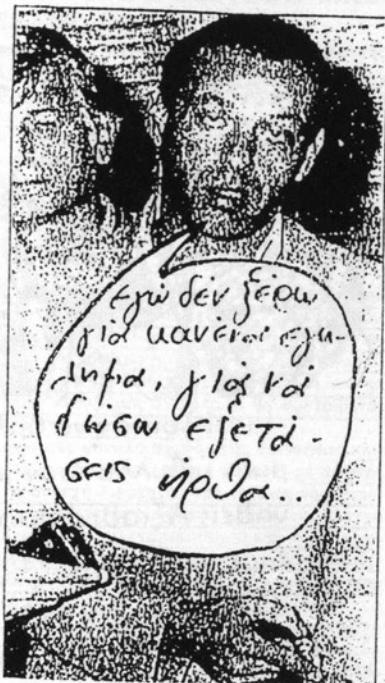 εγώ δέν ξέρω
γιά κανένα εγκ-
λημα, γιά νά
δώσω εξετά-
σεις ηρθα.